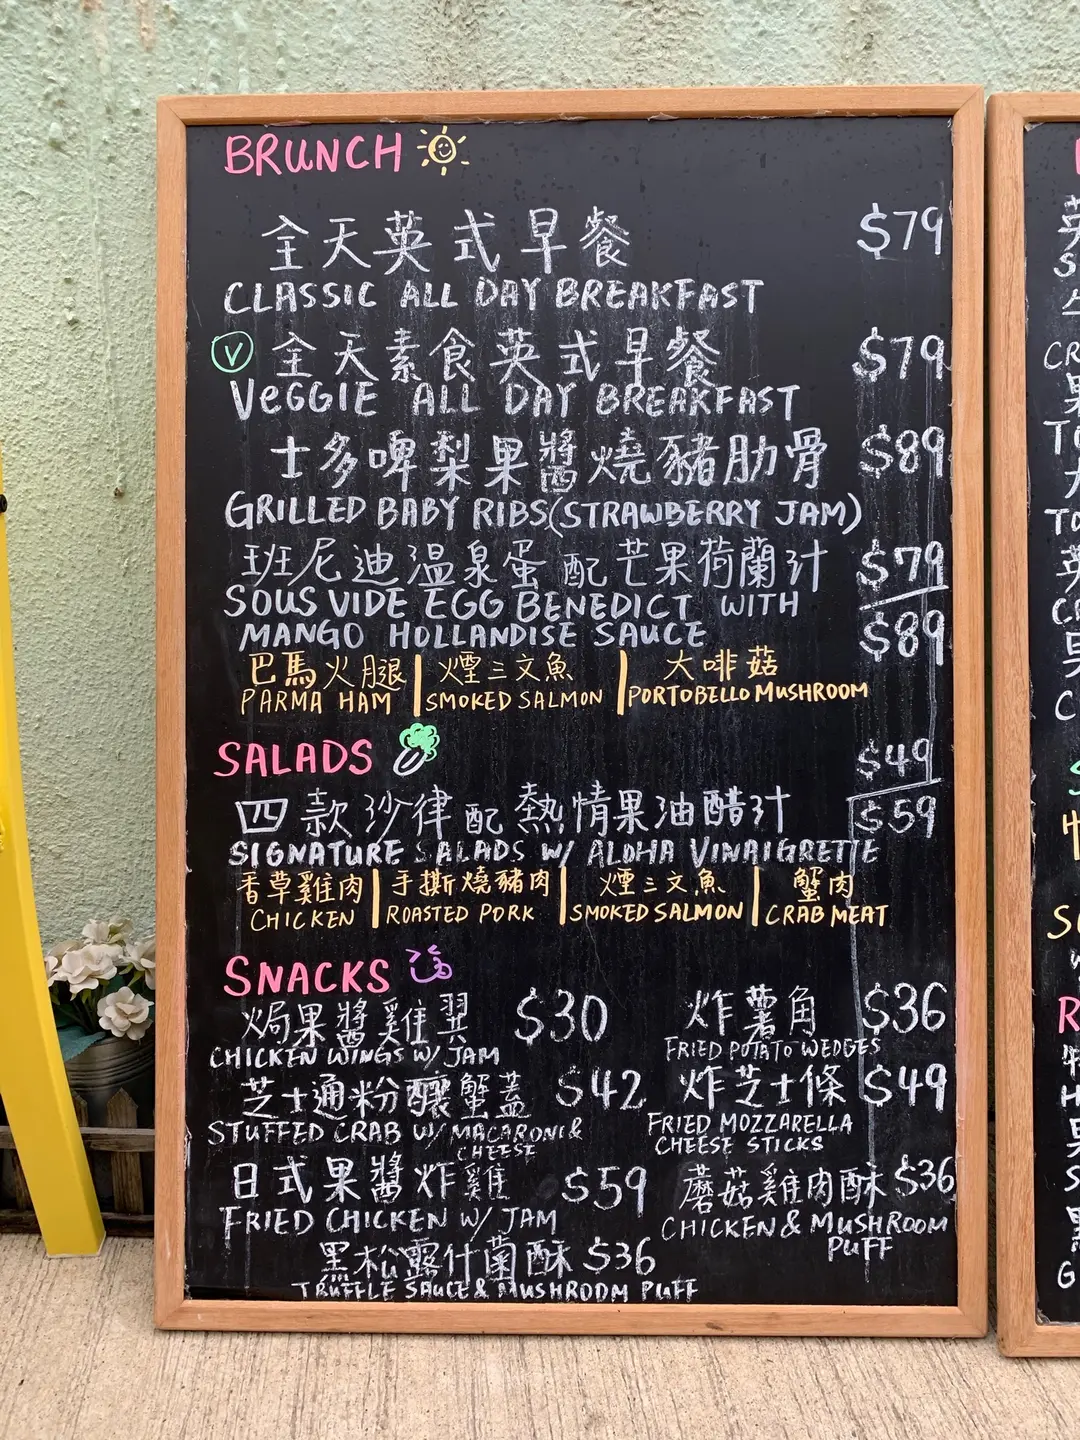 BRUNCH
全天英式早餐 $79
CLASSIC ALL DAY BREAKFAST
V 全天素食英式早餐 $79
VeGGIE ALL DAY BREAKFAST
士多啤梨果醬燒豬肋骨 $89
GRILLED BABY RIBS(STRAWBERRY JAM)
班尼迪温泉蛋配芒果荷蘭汁 $79
SOUS VIDE EGG BENEDICT WITH
MANGO HOLLANDISE SAUCE $89
巴馬火腿 | 煙三文魚 | 大啡菇
PARMA HAM | SMOKED SALMON | PORTOBELLO MUSHROOM
SALADS $49
四款沙律配熱情果油醋汁 $59
SIGNATURE SALADS W/ ALOHA VINAIGRETTE
香草雞肉 | 手撕燒豬肉 | 煙三文魚 | 蟹肉
CHICKEN | ROASTED PORK | SMOKED SALMON | CRAB MEAT
SNACKS
焗果醬雞翼 $30 炸薯角 $36
CHICKEN WINGS W/ JAM FRIED POTATO WEDGES
芝士通粉釀蟹蓋 $42 炸芝士條 $49
STUFFED CRAB W/ MACARONI & CHEESE FRIED MOZZARELLA
CHEESE STICKS
日式果醬炸雞 $59 蘑菇雞肉酥 $36
FRIED CHICKEN W/ JAM CHICKEN & MUSHROOM
PUFF
黑松露什菌酥 $36
TRUFFLE SAUCE & MUSHROOM PUFF